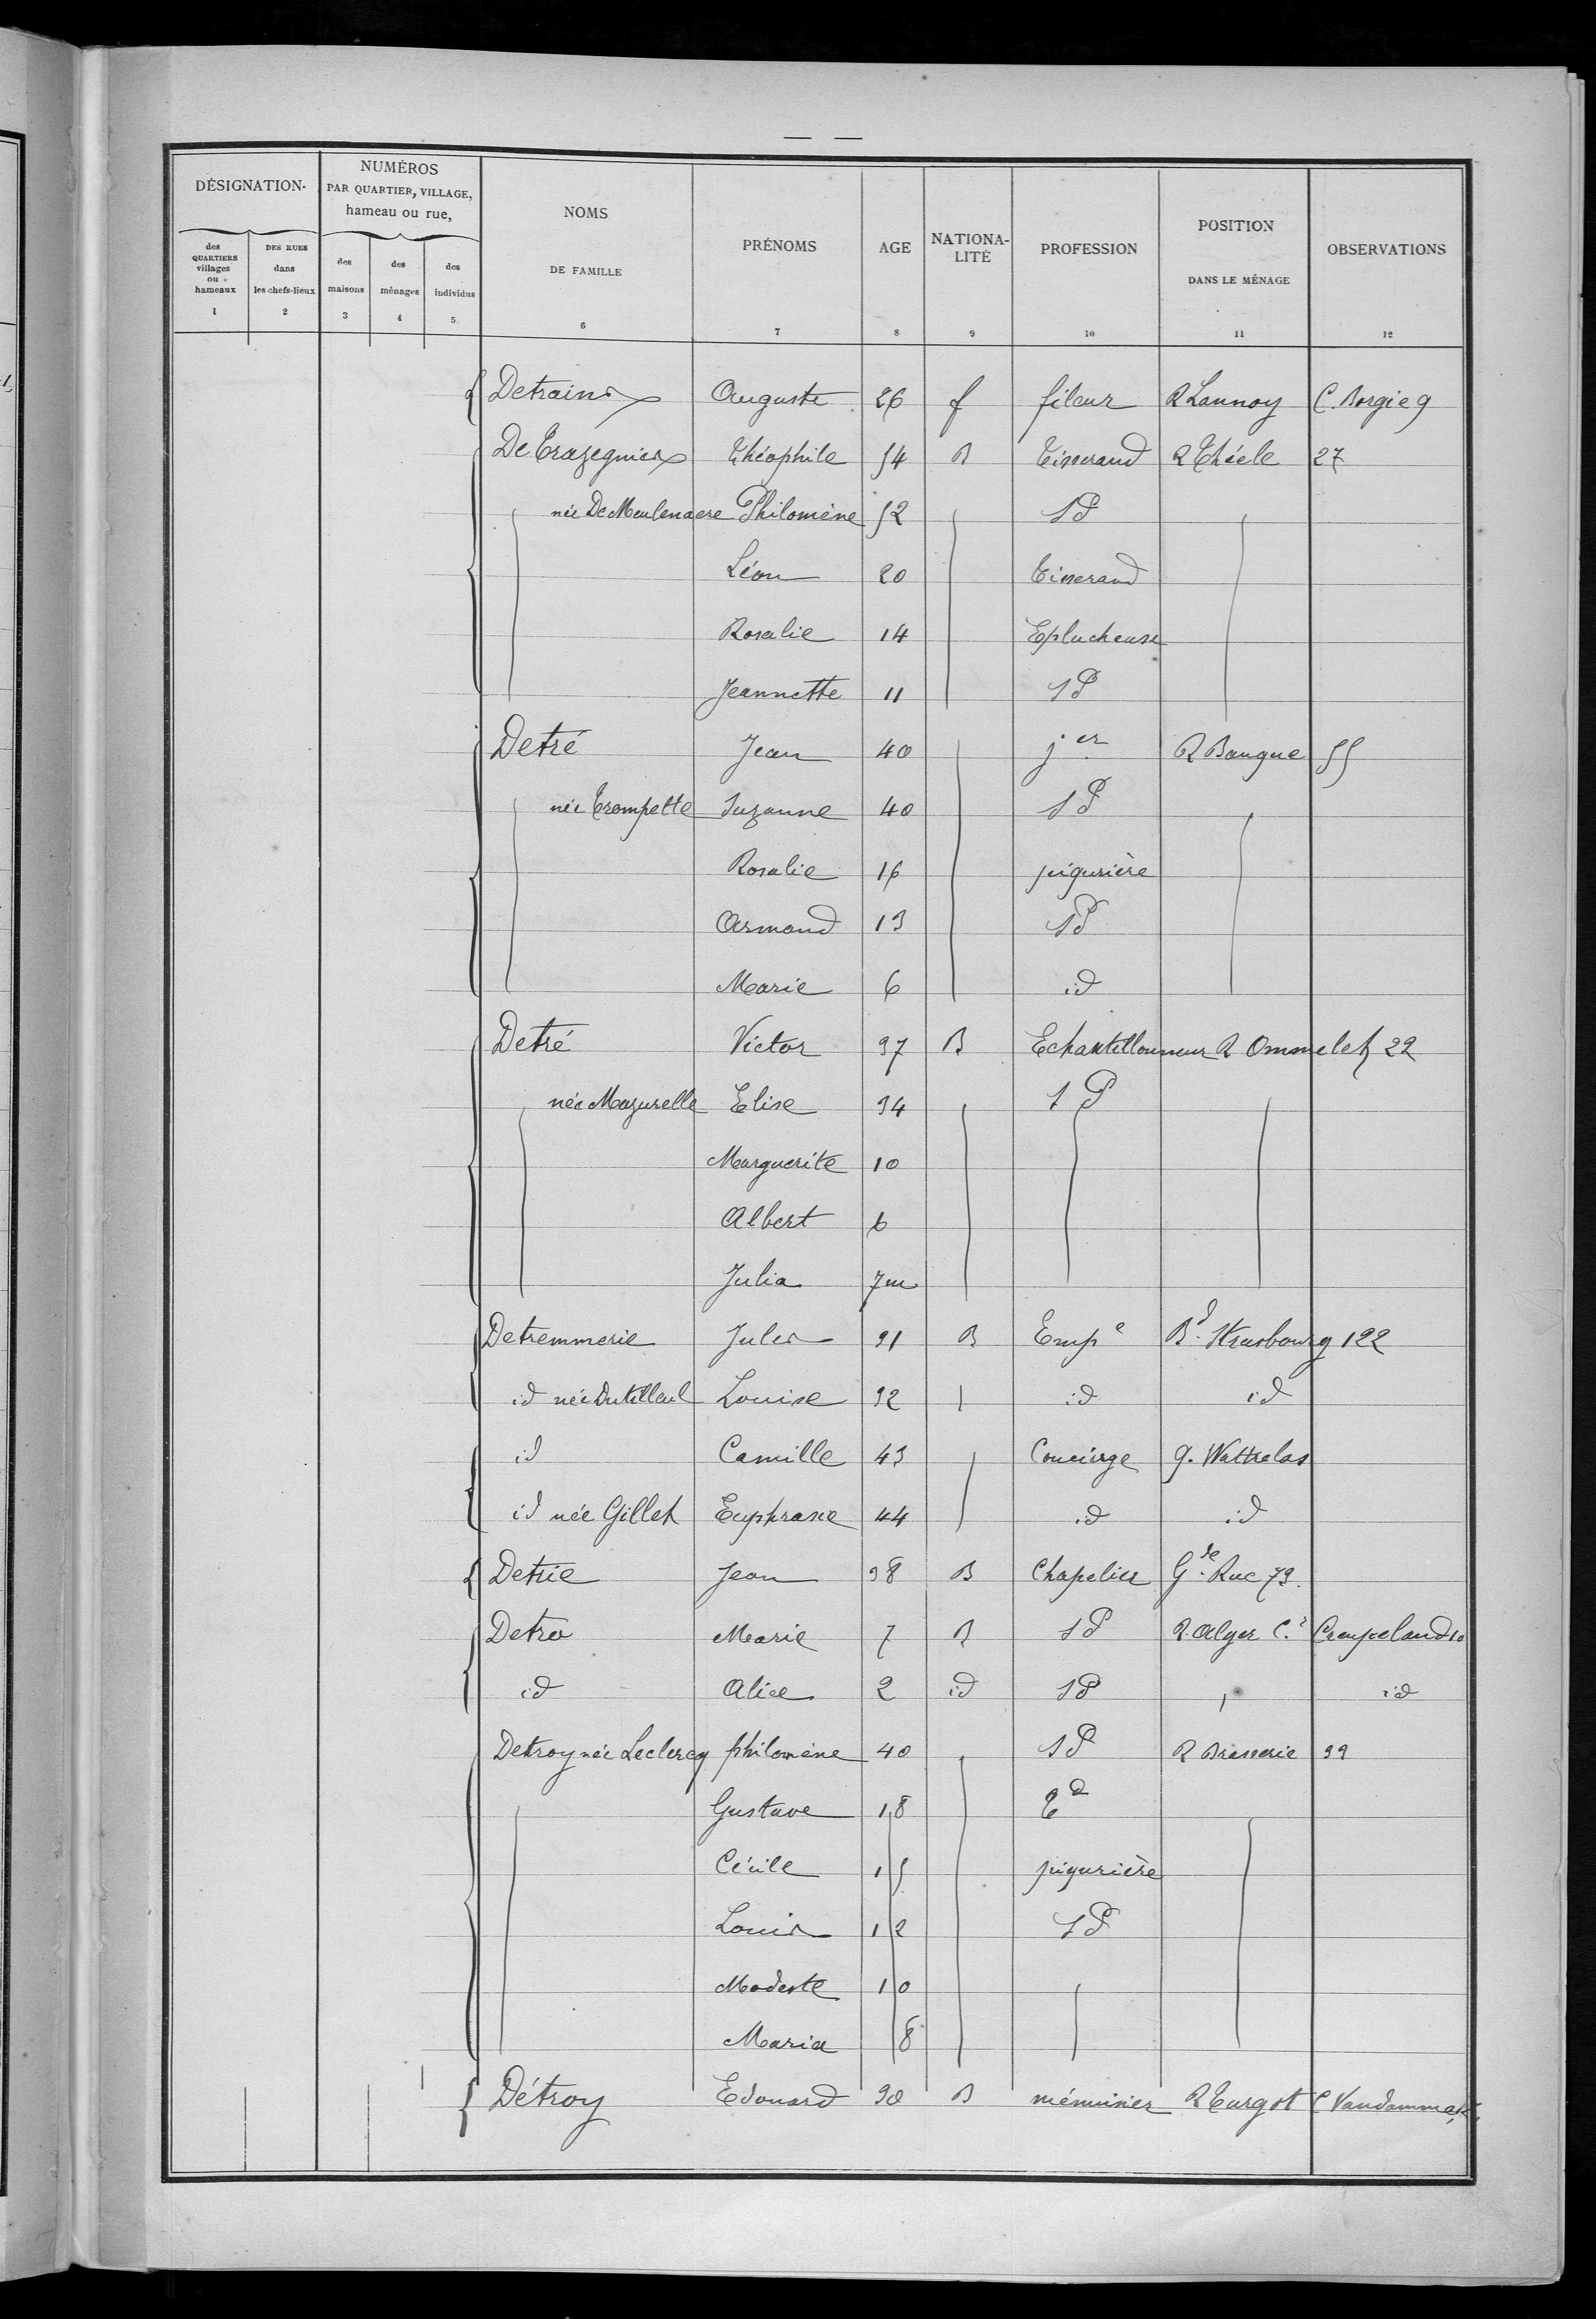 DÉSIGNATION.
NUMÉROS
PAR QUARTIER, VILLAGE,
hameau ou rue,
des QUARTIERS villages ou hameaux
DES RUES dans les chefs-lieux
des maisons
des ménages
des individus
NOMS DE FAMILLE
PRÉNOMS
AGE
NATIONA-LITÉ
PROFESSION
POSITION DANS LE MÉNAGE
OBSERVATIONS
1 2 3 4 5 6 7 8 9 10 11 12
Detrains Auguste 26 f fileur R Lannoy C. Borgie 9
De Trazegnies Théophile 54 B Tisserand R Thécle 27
née De Meulenaere Philomène 52 SP
Léon 20 Tisserand
Rosalie 14 Eplucheuse
Jeannette 11 SP
Detré Jean 40 jer R Banque 55
née Trompette Suzanne 40 SP
Rosalie 16 piqurière
Armand 13 SP
Marie 6 id
Detré Victor 37 B Echantillonneur R Ommelet 22
née Mazurelle Elise 34 SP
Marguerite 10
Albert 6
Julia 7m
Detremmerie Jules 31 B Empe Bd Strasbourg 122
id née Dutilleul Louise 32 id id
id Camille 43 Concierge q. Wattrelos
id née Gillet Euphrasie 44 id id
Detrie Jean 38 B Chapelier Gde Rue 73.
Detro Marie 7 B SP R. Alger C.r Creupelandt 10
id Alice 2 id SP id
Detroy née Leclercq philomène 40 SP R Brasserie 39
Gustave 18 Td
Cécile 15 piqurière
Louis 12 SP
Modeste 10
Maria 8
Détroy Edouard 30 B ménuisier R Turgot C Vandamme